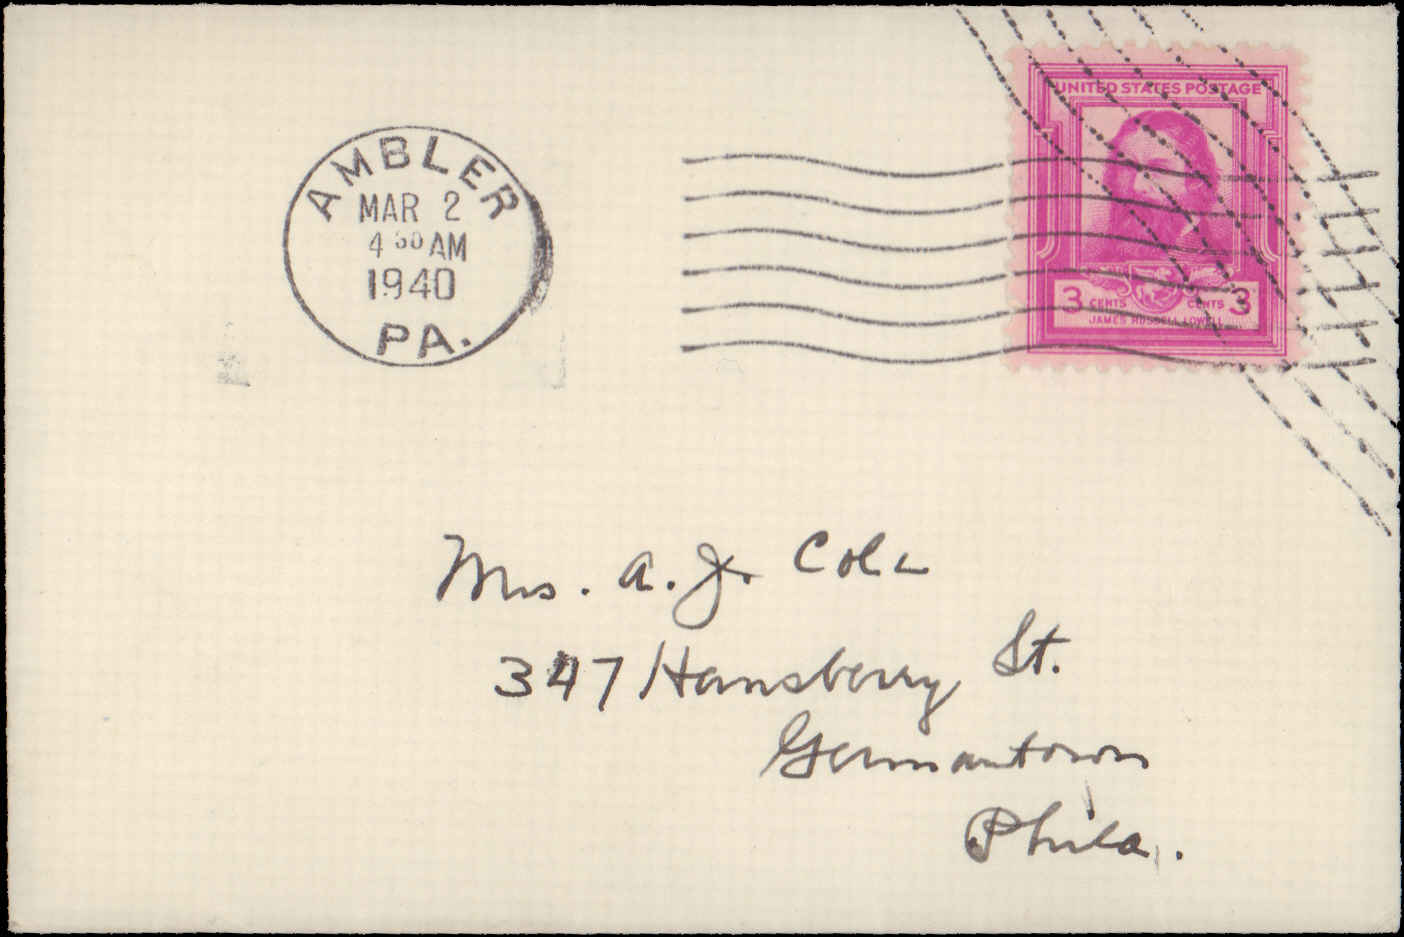 AMBLER
MAR 2
4 30 AM
1940
PA.
UNITED STATES POSTAGE
3 CENTS CENTS 3
JAMES RUSSELL LOWELL
Mrs. A. J. Cole
347 Hansberry St.
Germantown
Phila.